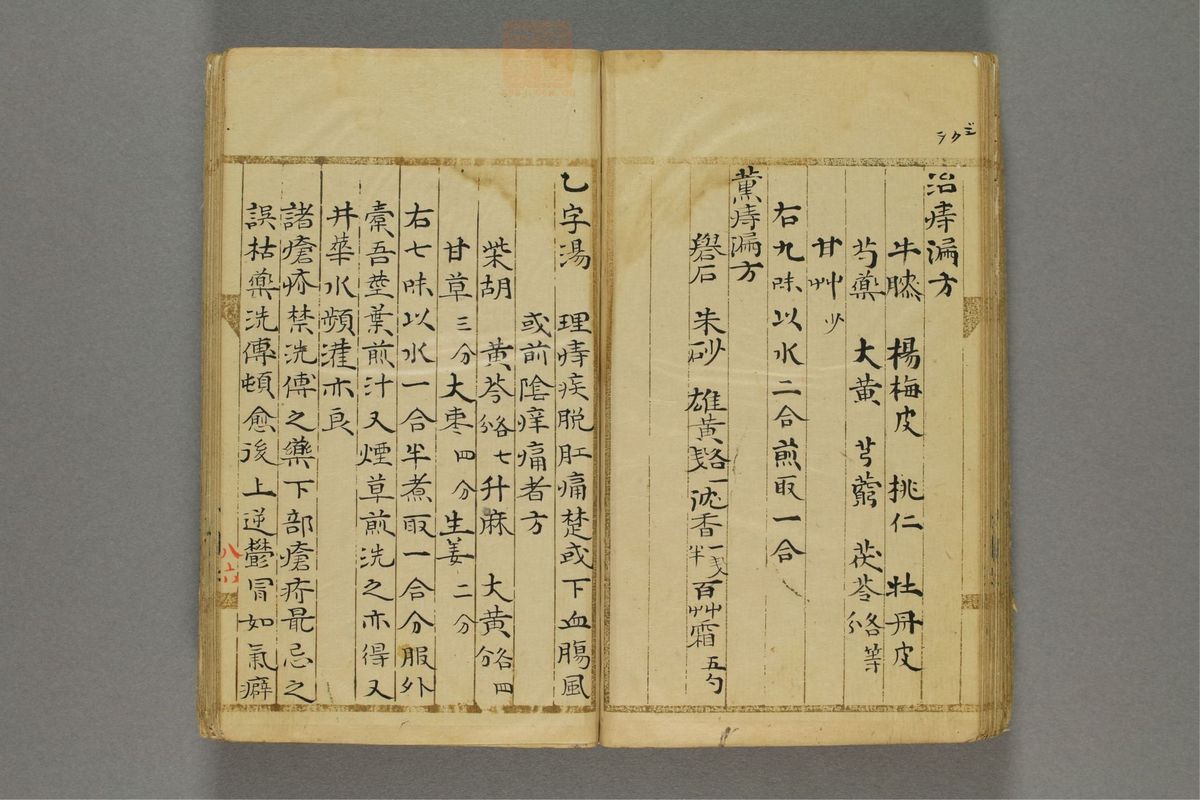 治痔漏方
牛膝 楊梅皮 桃仁 牡丹皮
芍藥 大黄 芎藭 茯苓各等分
甘艸少
右九味以水二合煎取一合
薫痔漏方
礜石 朱砂 雄黄各一戔 沈香一戔半 百艸霜五勺
乙字湯 理痔疾脱肛痛楚或下血腸風
或前陰痒痛者方
柴胡 黄芩各七分 升麻 大黄各四分
甘草三分 大棗四分 生姜二分
右七味以水一合半煮取一合分服外
橐吾莖葉煎汁又煙草煎洗之亦得又
井華水頻灌亦良
諸瘡疥禁洗傅之藥下部瘡疥最忌之
誤枯藥洗傅頓愈後上逆鬱冒如氣癖
八六